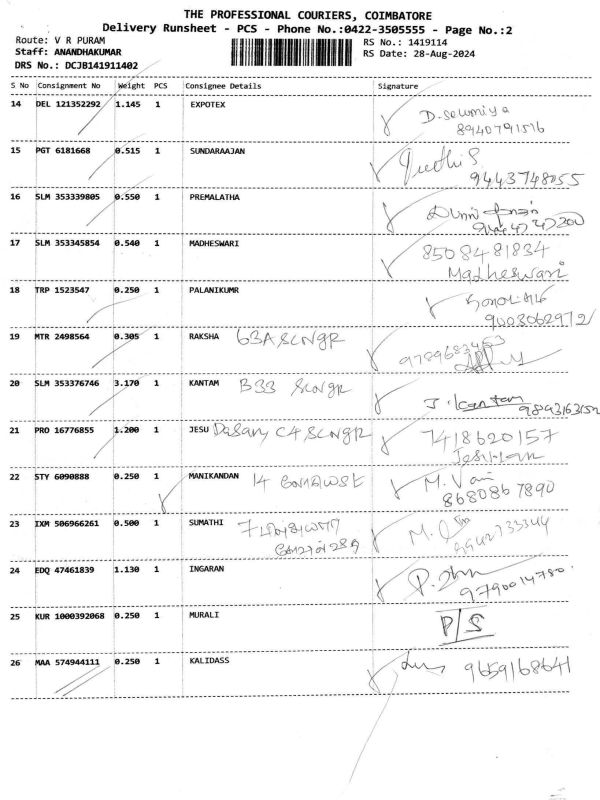 THE PROFESSIONAL COURIERS, COIMBATORE
Delivery Runsheet - PCS - Phone No.:0422-3505555 - Page No.:2
Route: V R PURAM
RS No.: 1419114
Staff: ANANDHAKUMAR
RS Date: 28-Aug-2024
DRS No.: DCJB141911402
S No Consignment No Weight PCS Consignee Details Signature
14 DEL 121352292 1.145 1 EXPOTEX D. Sowmiya
8940791516
15 PGT 6181668 0.515 1 SUNDARAAJAN
9443748055
16 SLM 353339805 0.550 1 PREMALATHA
17 SLM 353345854 0.540 1 MADHESWARI 8508481834
Madheswari
18 TRP 1523547 0.250 1 PALANIKUMR
9003062972
19 MTR 2498564 0.305 1 RAKSHA 63A SCNGR 9789683453
20 SLM 353376746 3.170 1 KANTAM B33 SCNGR J. Kantam
21 PRO 16776855 1.200 1 JESU C4 SCNGR 7418620157
22 STY 6090888 0.250 1 MANIKANDAN 14 M. Vani
8680867890
23 IXM 506966261 0.500 1 SUMATHI 7 M.
24 EDQ 47461839 1.130 1 INGARAN
9790014780
25 KUR 1000392068 0.250 1 MURALI P/S
26 MAA 574944111 0.250 1 KALIDASS 9659168641